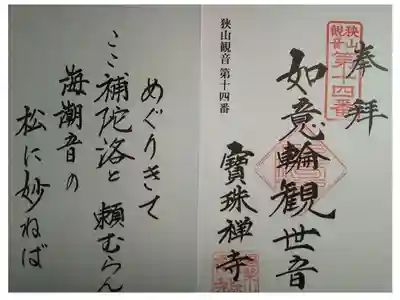 奉拝
狭山
観音
第十四番
如意輪観世音
寳珠禅寺
狭山観音 第十四番
めぐりきて
ここ補陀洛と 頼むらん
海潮音の
松に妙ねば